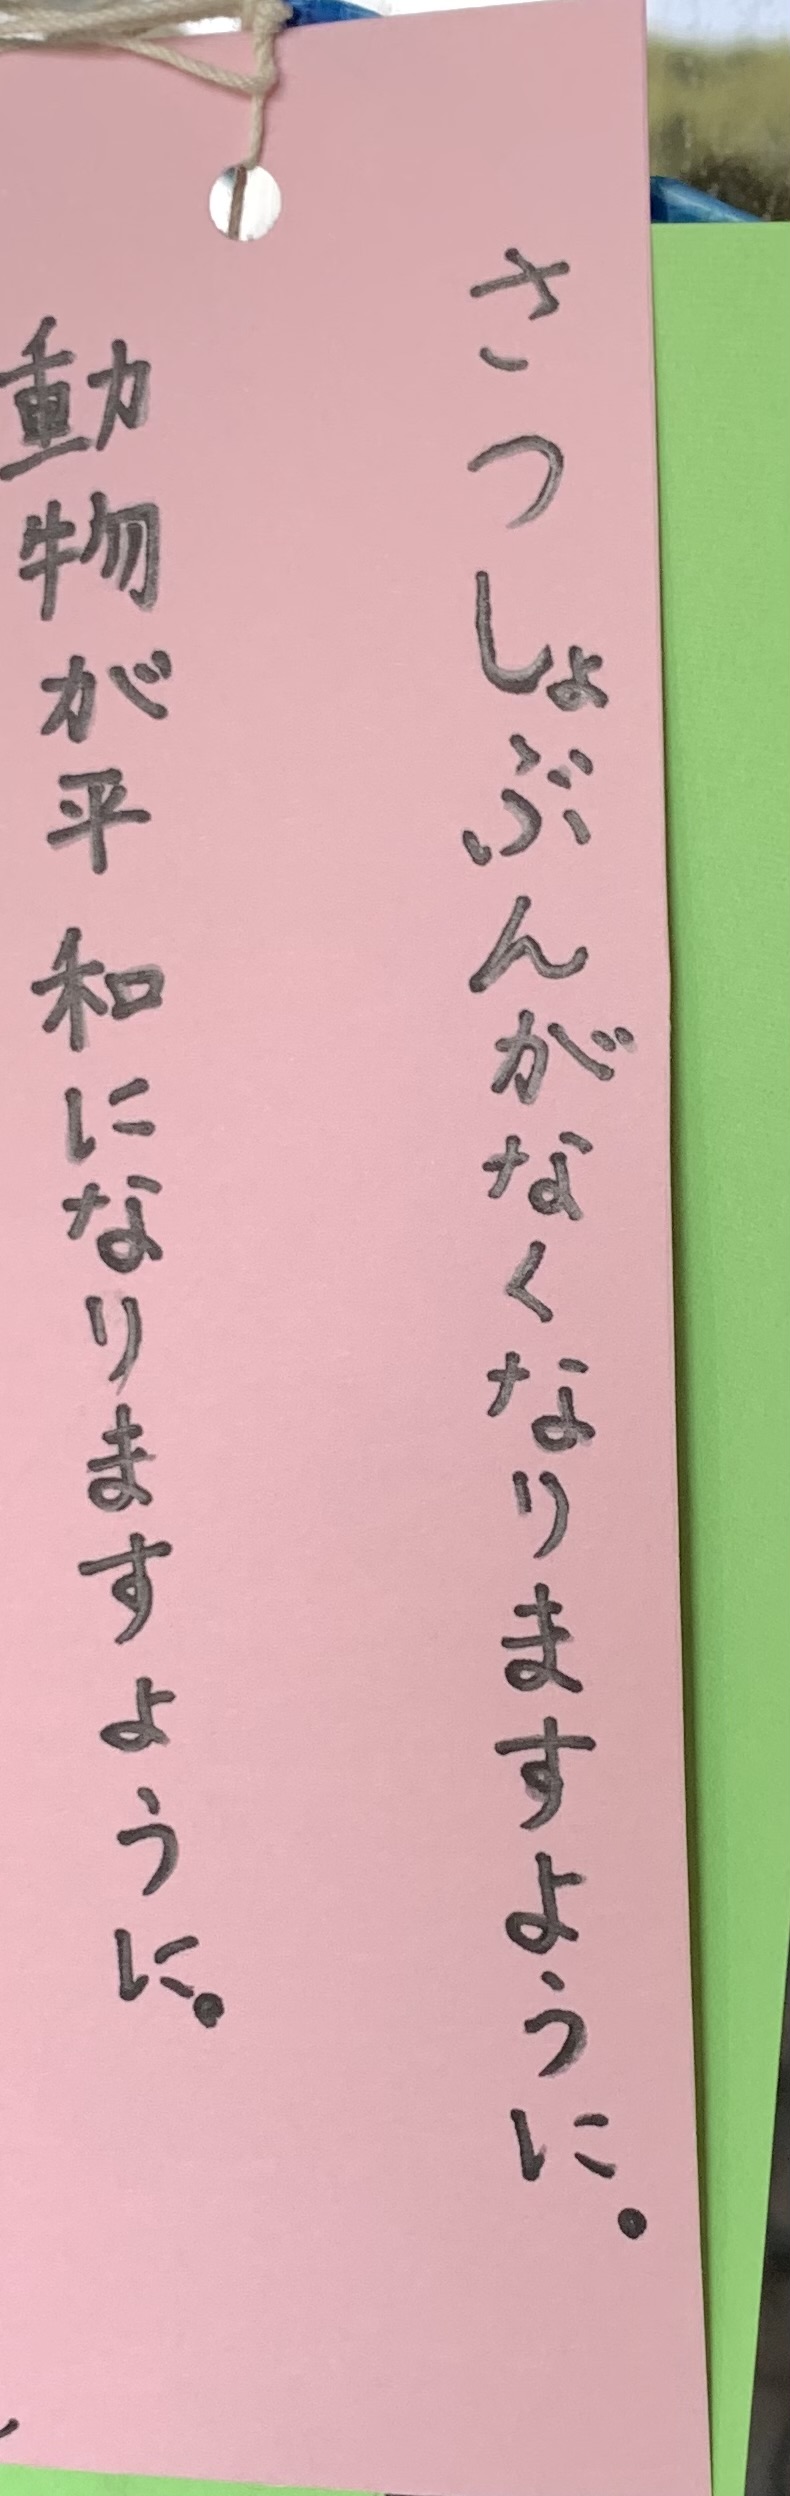 さつしょぶんがなくなりますように。
動物が平和になりますように。